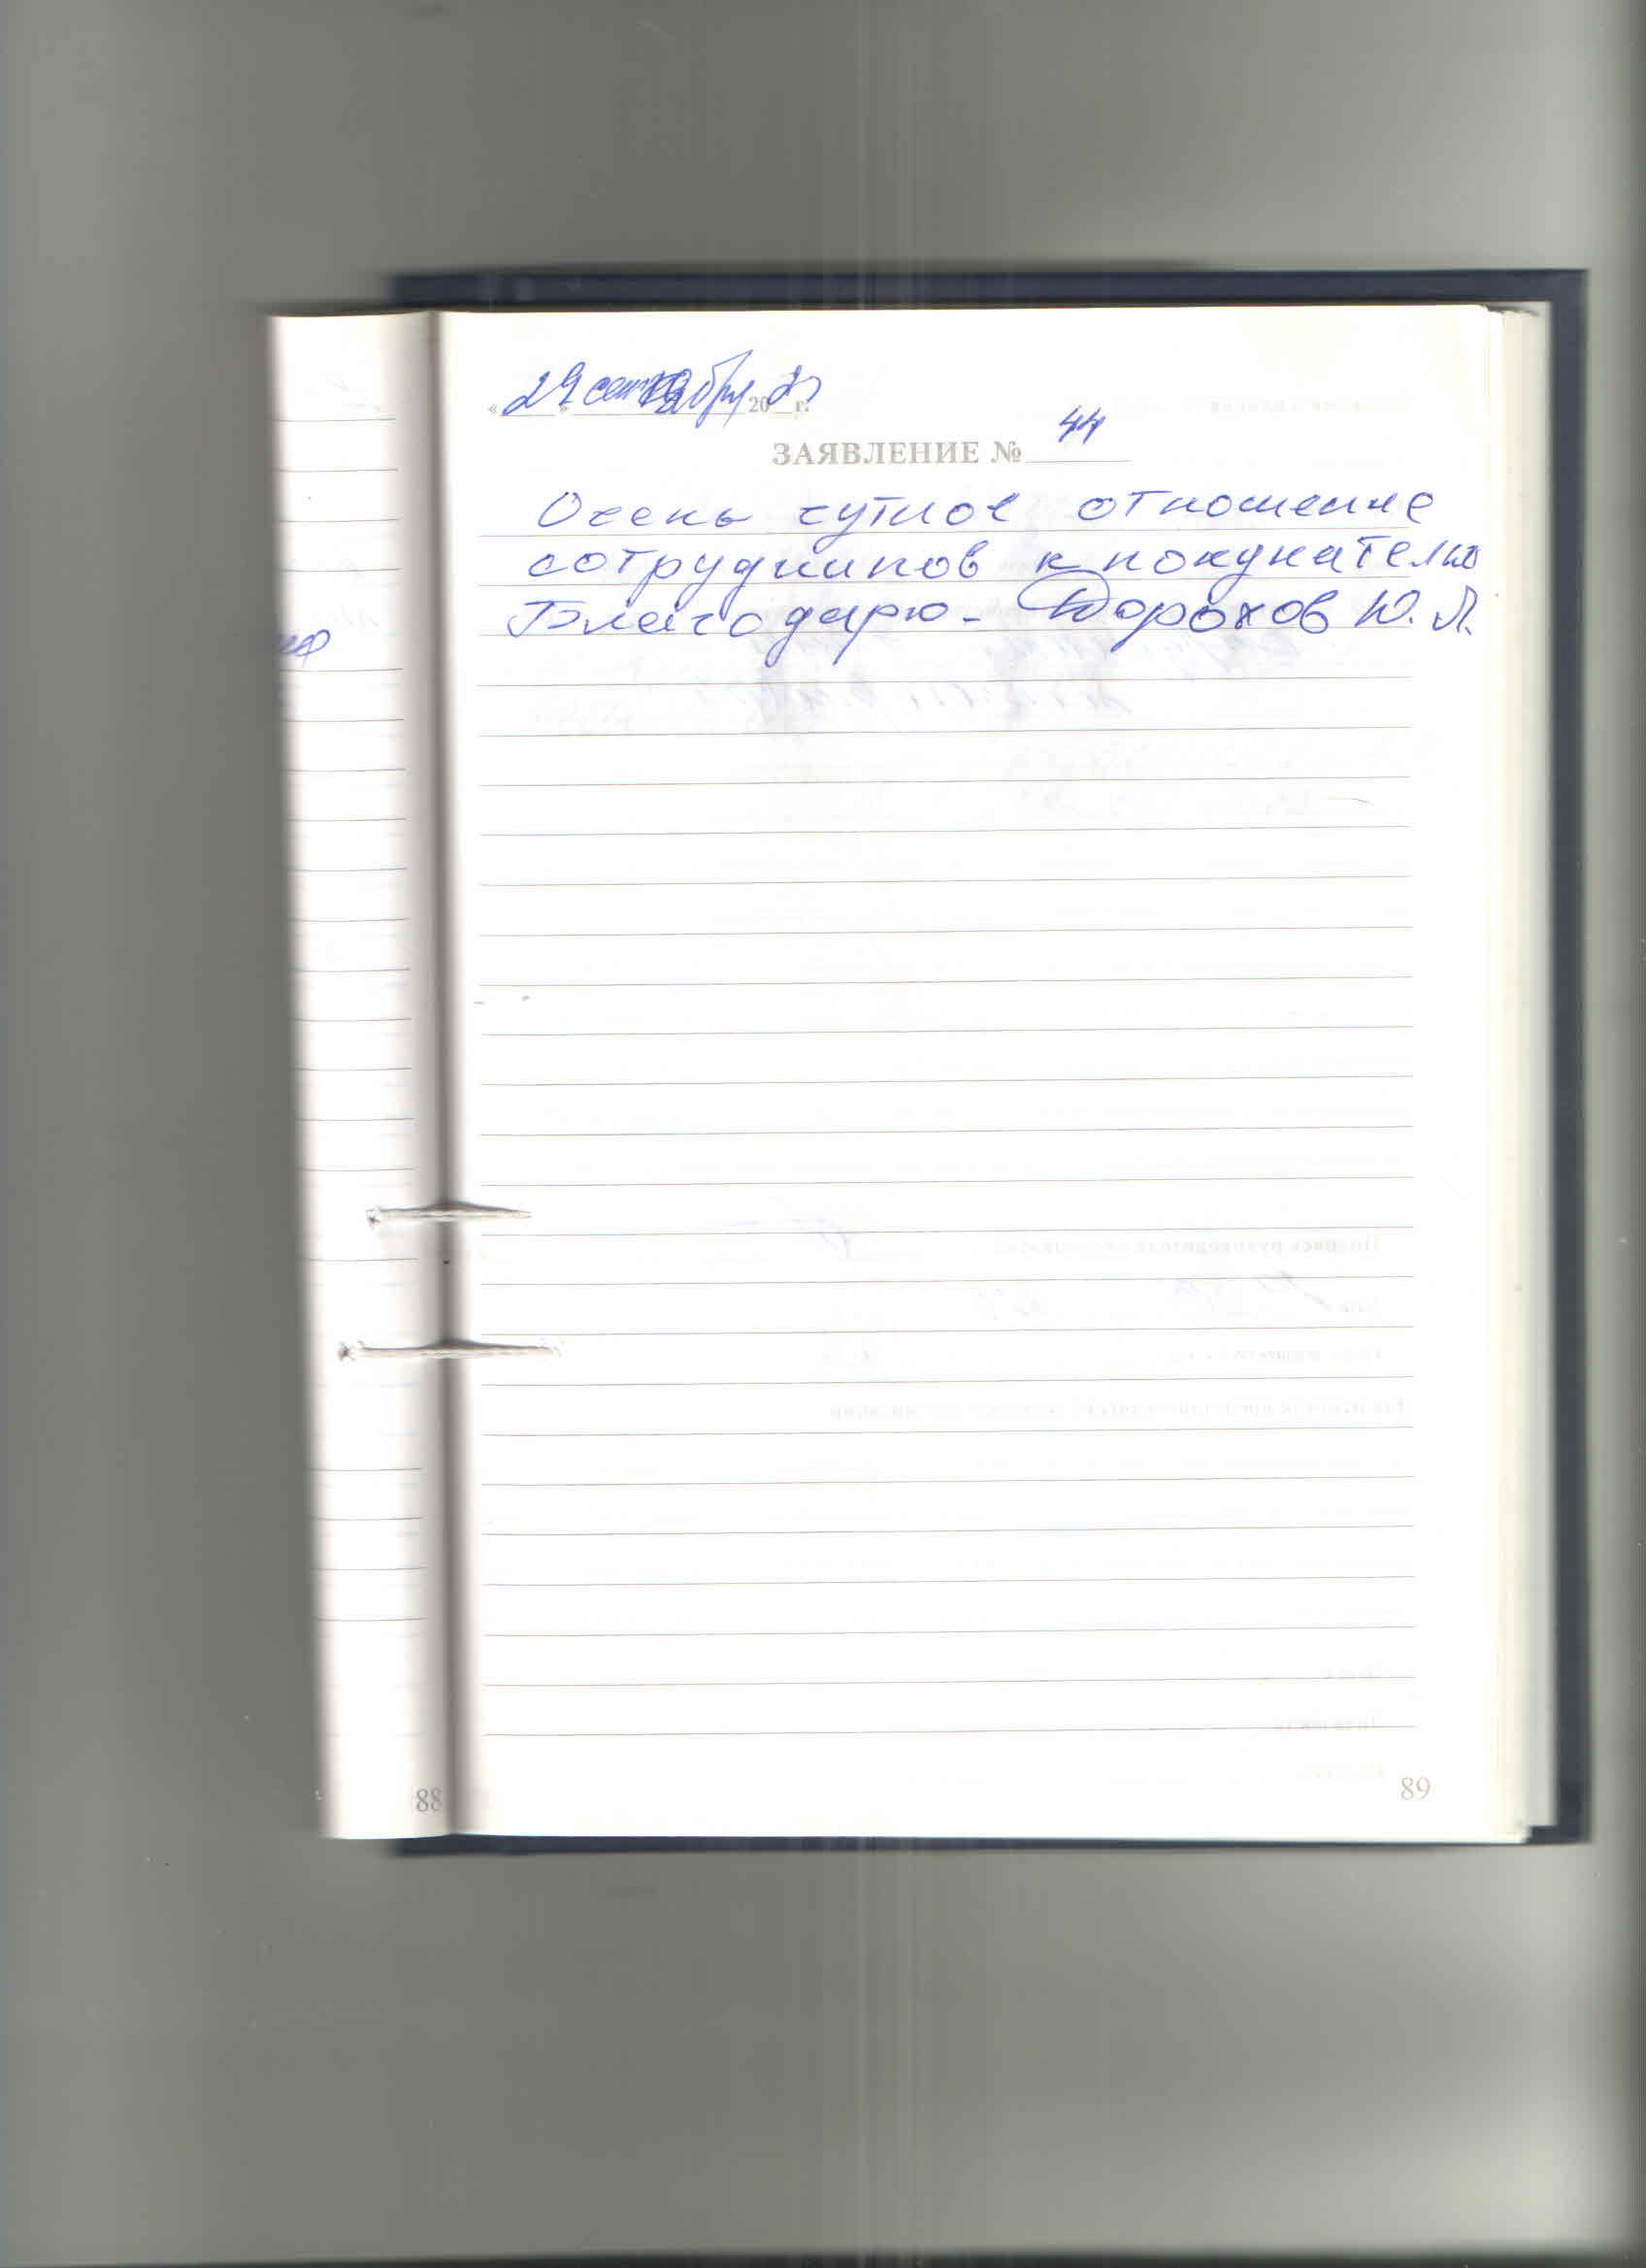 «29» сентября 2023 г.
ЗАЯВЛЕНИЕ № 44
Очень чуткое отношение
сотрудников к покупателю
Благодарю - Дорохов Ю. Л.
88
89